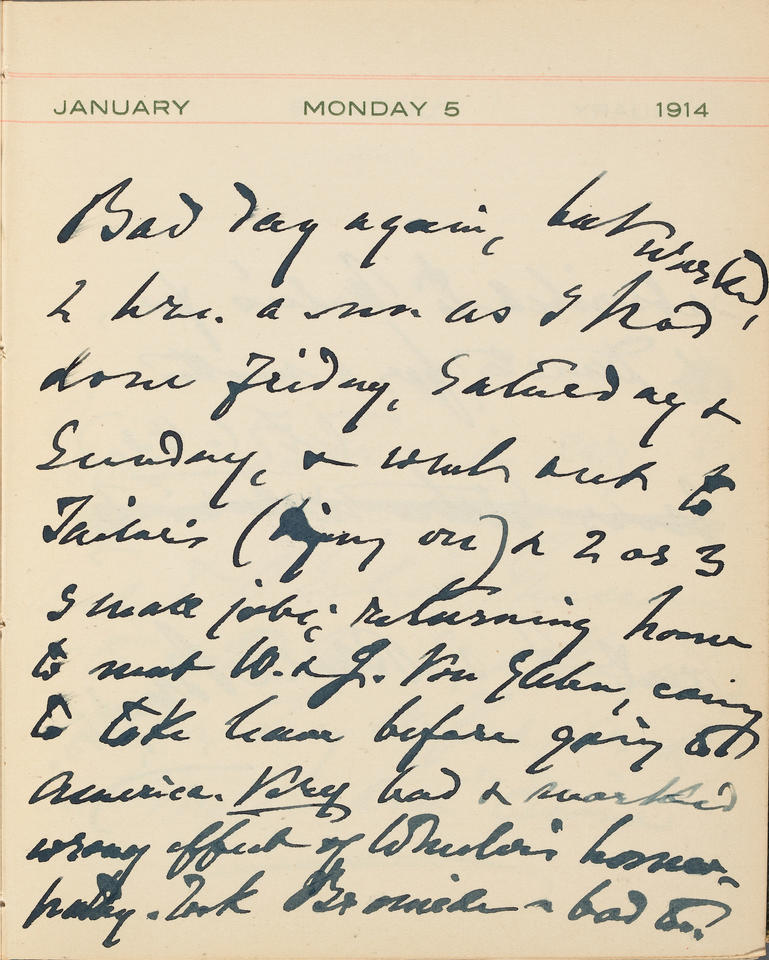 JANUARY MONDAY 5 1914
Bad day again, but worked,
2 hrs. as I had
done Friday, Saturday &
Sunday, & went out to
Tailor's (trying on) & 2 or 3
small jobs; returning home
to meet W. & J. Von Glehn, coming
to take leave before going to
America. Very bad & marked
wrong effect of Wheeler's homeo-
pathy. Took Bromide – had to.